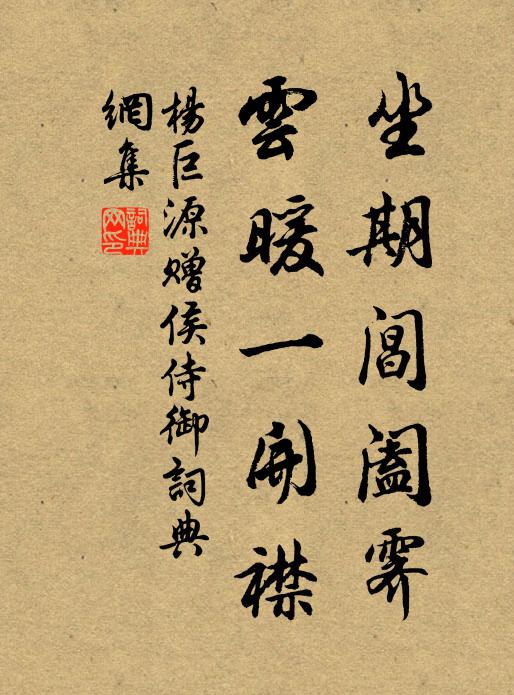 坐期閶闔霽
雲暖一開襟
楊巨源贈侯侍御詞典
網集
詞典
网印